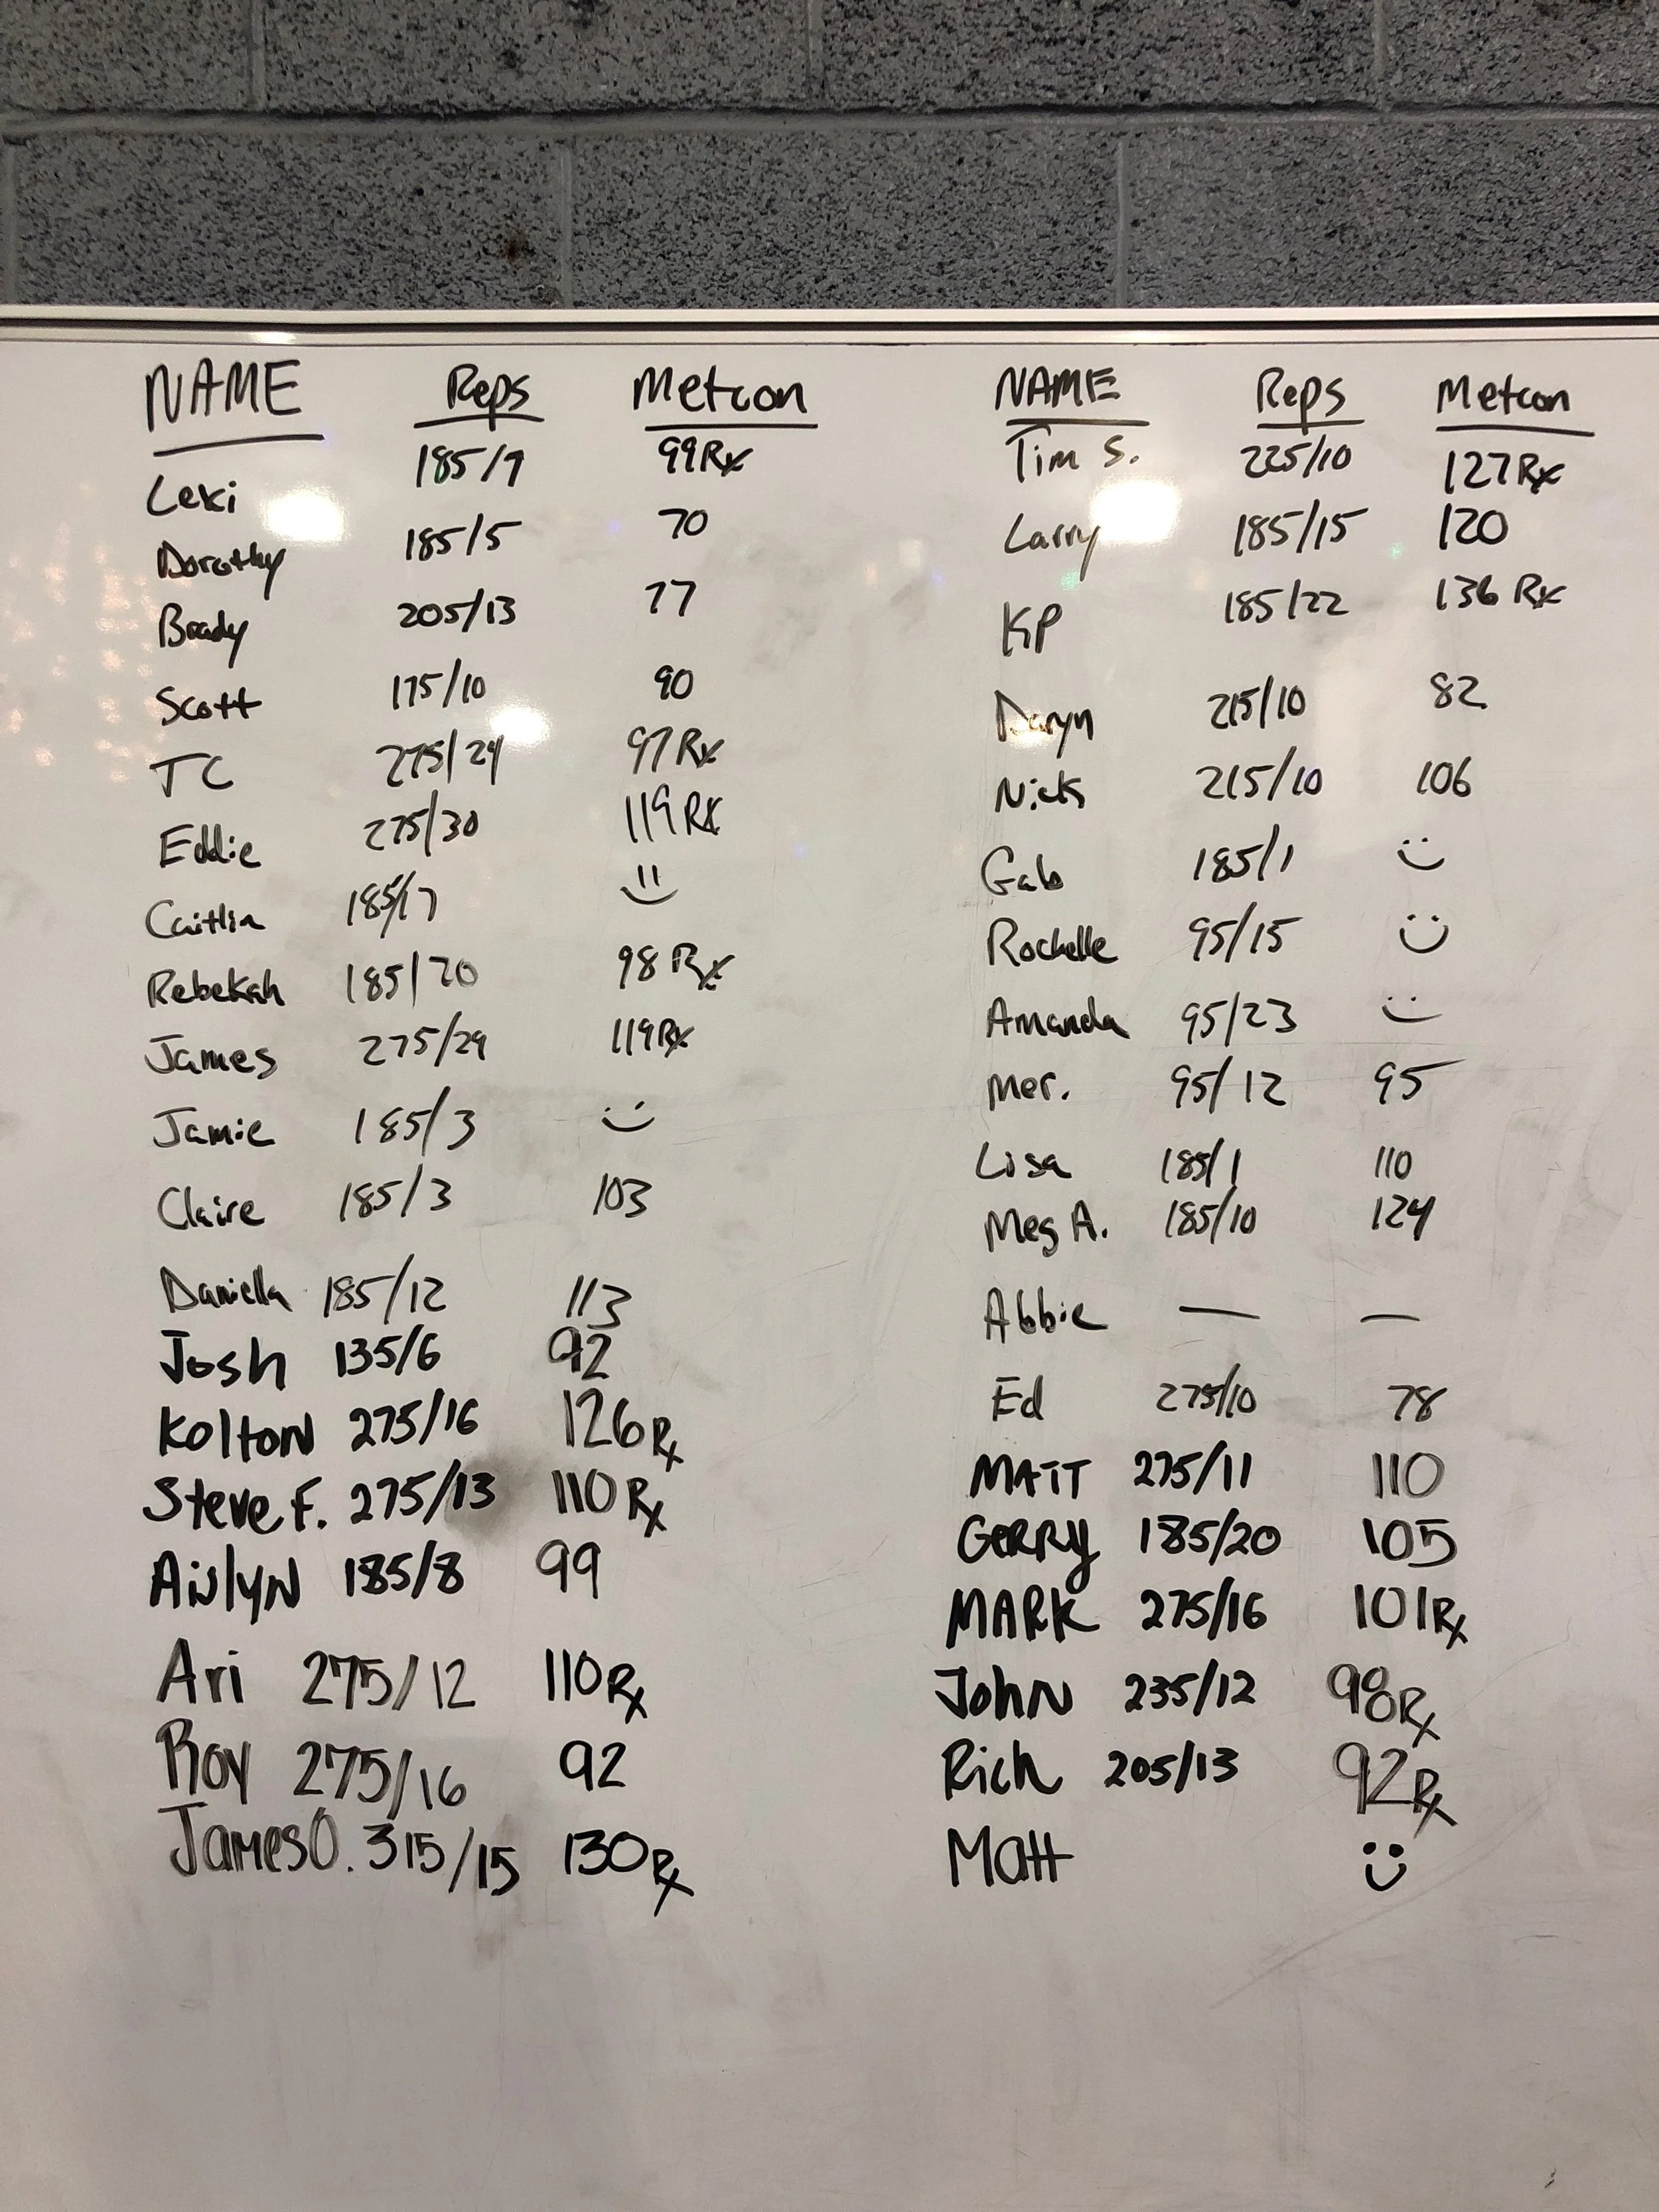 NAME Reps Metcon
Leki 185/9 99Rx
Dorothy 185/5 70
Brady 205/13 77
Scott 175/10 90
TC 275/24 97Rx
Eddie 275/30 119Rx
Caitlin 185/7
Rebekah 185/20 98Rx
James 275/29 119Rx
Jamie 185/3
Claire 185/3 103
Daniella 185/12 113
Josh 135/6 92
Kolton 275/16 126Rx
Steve F. 275/13 110Rx
185/8 99
Ari 275/12 110Rx
Roy 275/16 92
James O. 315/15 130Rx
NAME Reps Metcon
Tim S. 225/10 127Rx
Larry 185/15 120
KP 185/22 136 Rx
Daryn 215/10 82
Nick 215/10 106
Gab 185/1
Rochelle 95/15
Amanda 95/23
Mer. 95/12 95
Lisa 185/1 110
Meg A. 185/10 124
Abbie — —
Ed 275/10 78
MATT 275/11 110
GERRy 185/20 105
MARK 275/16 101Rx
John 235/12 98Rx
Rich 205/13 92Rx
Matt